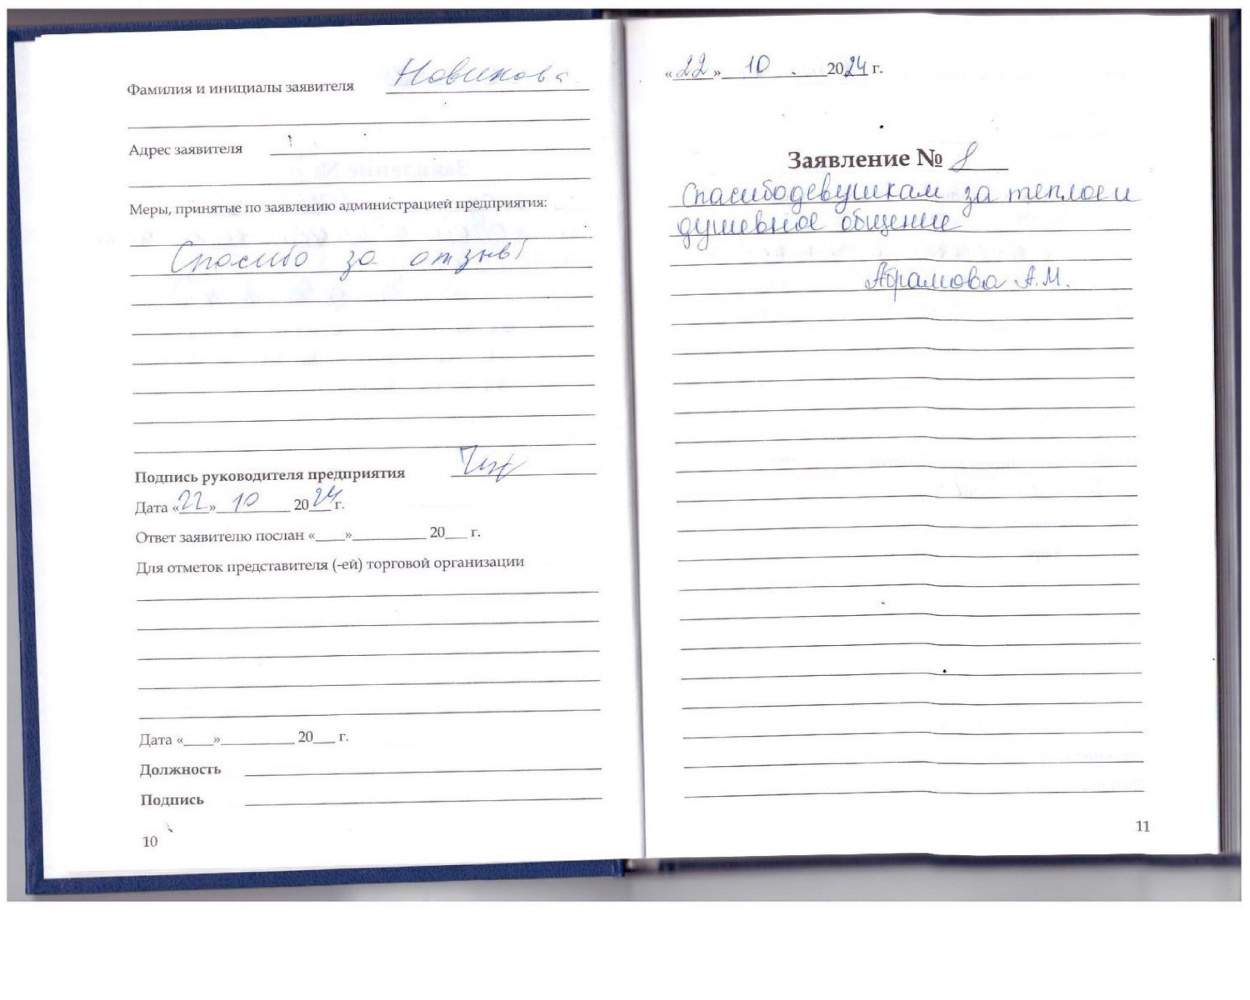 Фамилия и инициалы заявителя Новикова
Адрес заявителя
Меры, принятые по заявлению администрацией предприятия:
Спасибо за отзыв!
Подпись руководителя предприятия
Дата «22» 10 2024 г.
Ответ заявителю послан «____»__________ 20___ г.
Для отметок представителя (-ей) торговой организации
Дата «____»__________ 20___ г.
Должность
Подпись
10
«22» 10 2024 г.
Заявление № 8
Спасибо девушкам за теплое и
душевное общение
Абрамова А.М.
11